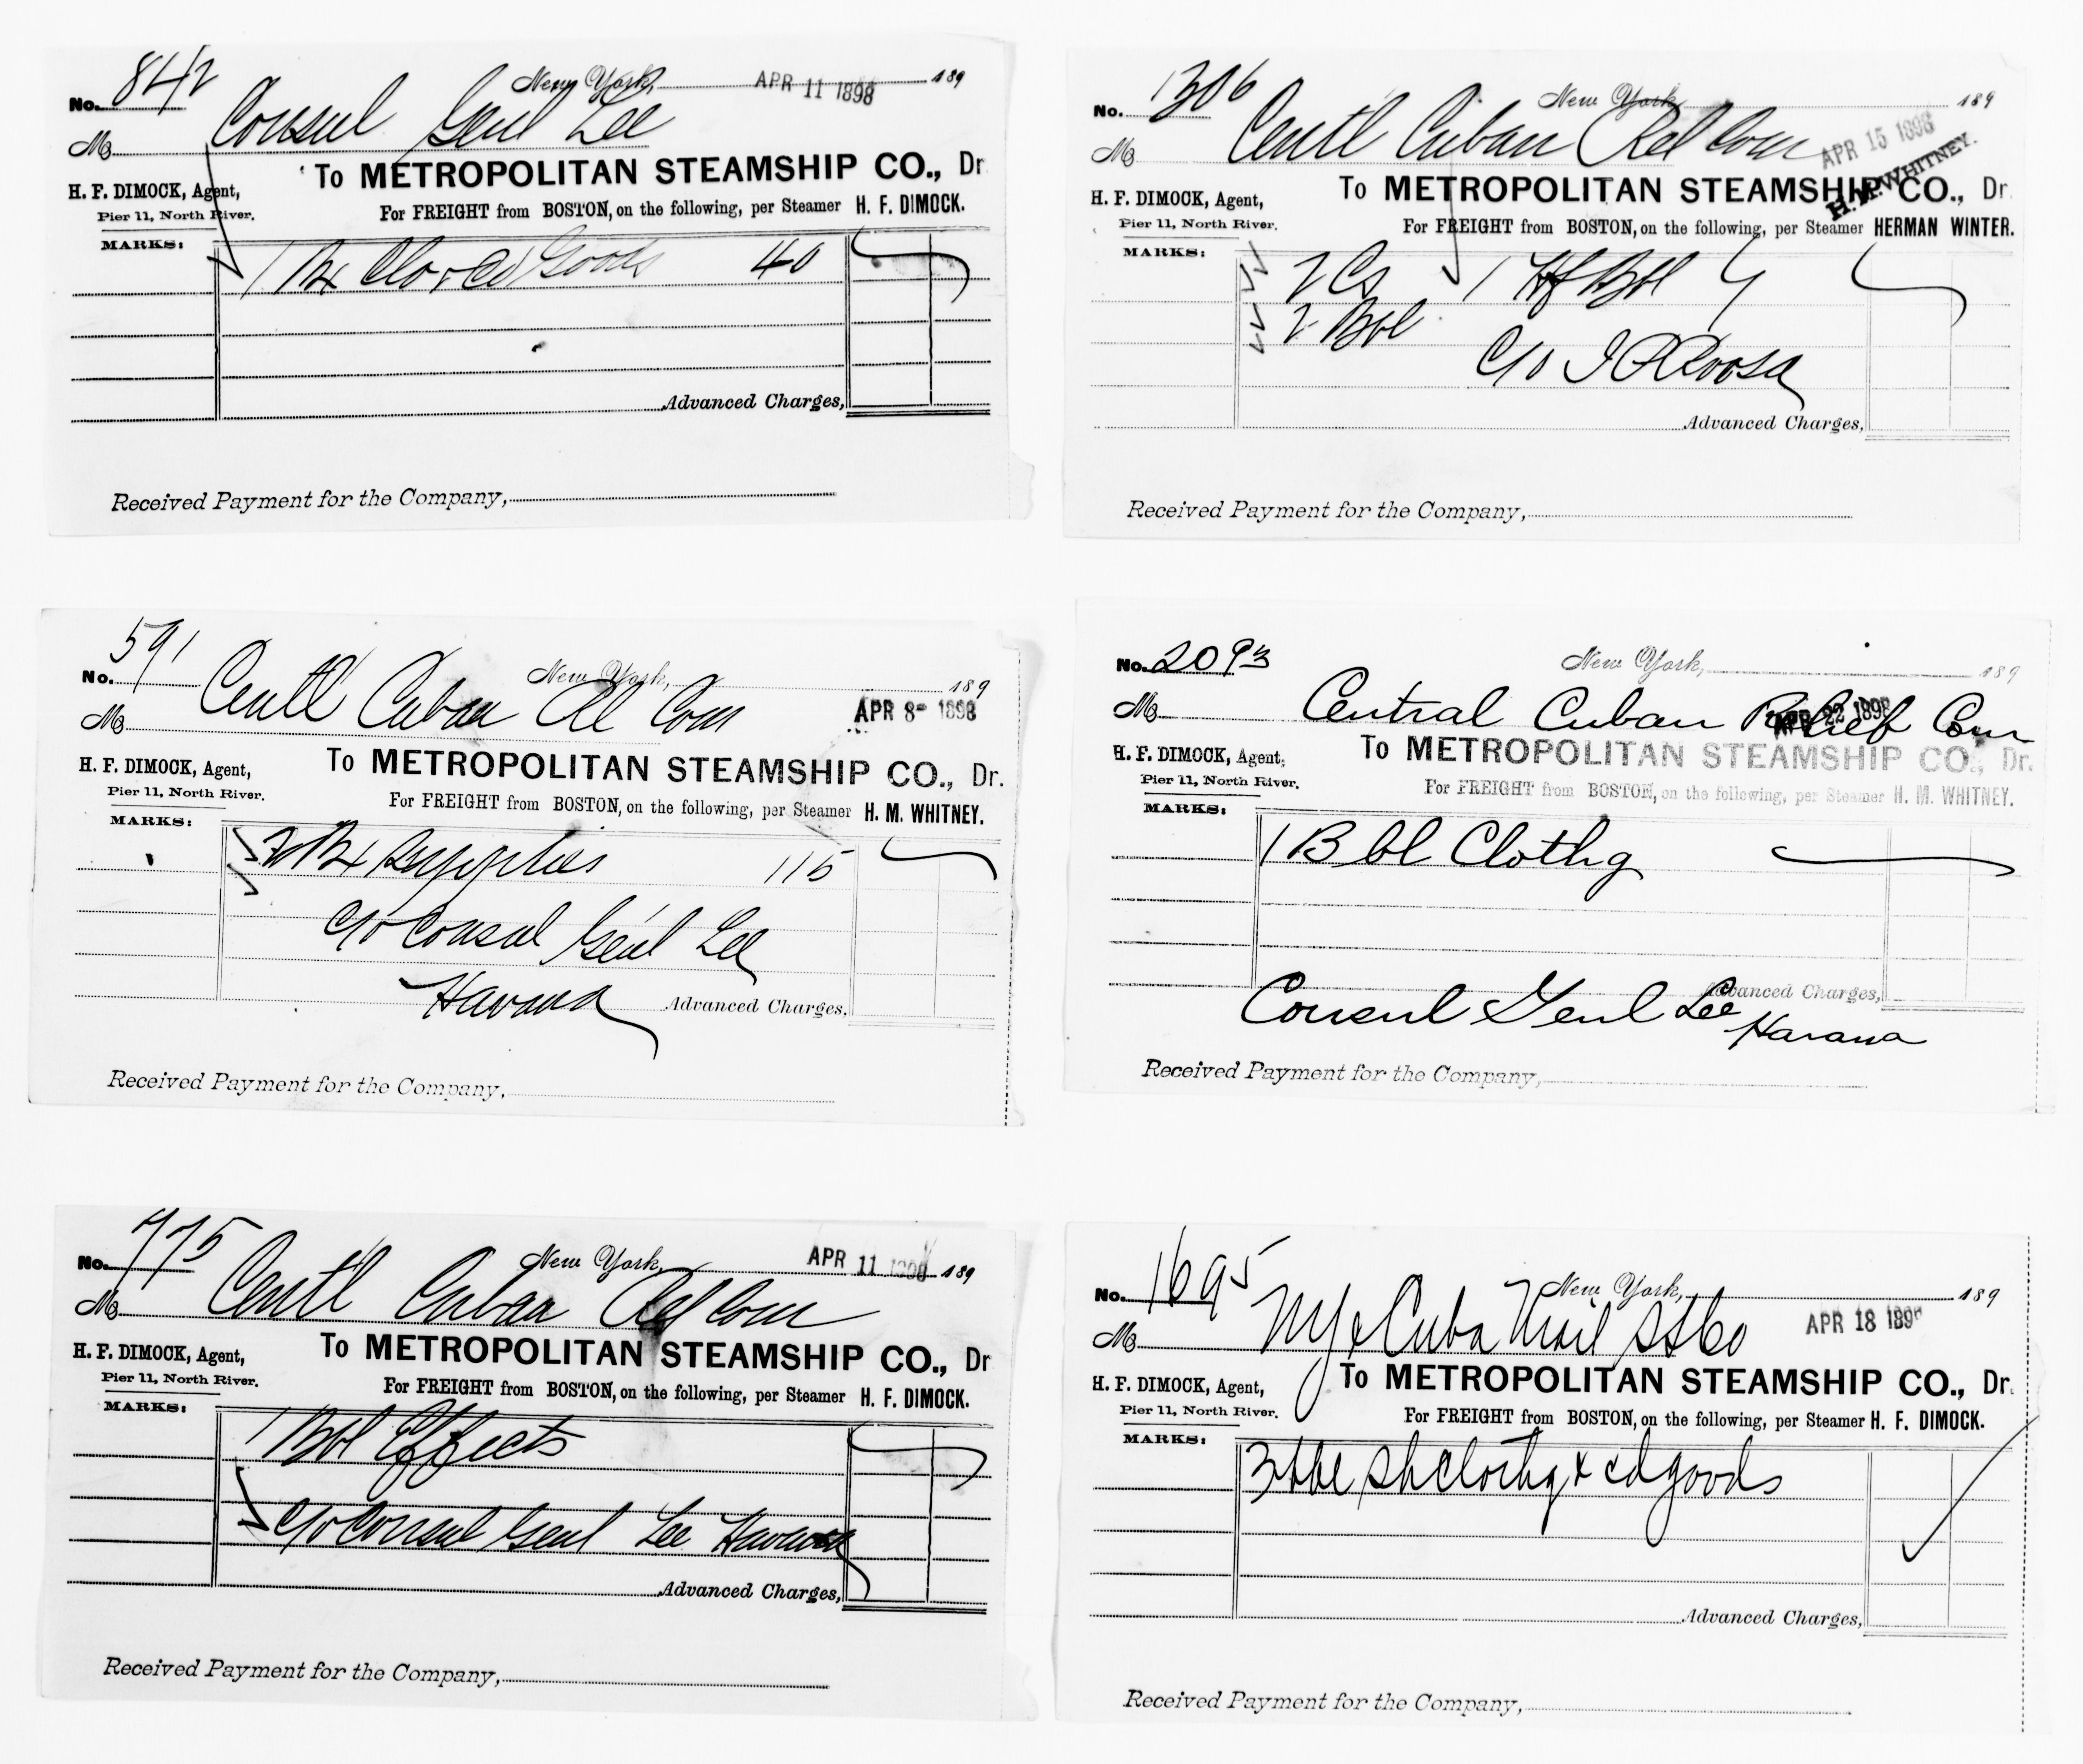 No. 842 New York, APR 11 1898 189
M Consul Genl Lee
To METROPOLITAN STEAMSHIP CO., Dr
H. F. DIMOCK, Agent,
Pier 11, North River.
For FREIGHT from BOSTON, on the following, per Steamer H. F. DIMOCK.
MARKS:
1 Bx Clo & Cd Goods 40
Advanced Charges,
Received Payment for the Company,
No. 1306 New York 189
M Centl Cuban Rel Com APR 15 1898
H. M. WHITNEY.
To METROPOLITAN STEAMSHIP CO., Dr.
H. F. DIMOCK, Agent,
Pier 11, North River.
For FREIGHT from BOSTON, on the following, per Steamer HERMAN WINTER.
MARKS:
2 Cs 1 Hf Bbl
2 Bbl
C/o
Advanced Charges,
Received Payment for the Company,
No. 591 New York, 189
M Centl Cuban Rel Com APR 8- 1898
To METROPOLITAN STEAMSHIP CO., Dr.
H. F. DIMOCK, Agent,
Pier 11, North River.
For FREIGHT from BOSTON, on the following, per Steamer H. M. WHITNEY.
MARKS:
2 Bx Supplies 115
C/o Consul Gen'l Lee
Havana
Advanced Charges,
Received Payment for the Company,
No. 2093 New York, 189
M Central Cuban Relief Com
APR 22 1898
To METROPOLITAN STEAMSHIP CO., Dr.
H. F. DIMOCK, Agent,
Pier 11, North River.
For FREIGHT from BOSTON, on the following, per Steamer H. M. WHITNEY.
MARKS:
1 Bbl Clothg
Advanced Charges,
Consul Genl Lee
Havana
Received Payment for the Company,
No. 775 New York, APR 11 1898 189
M Centl Cuban Rel Com
To METROPOLITAN STEAMSHIP CO., Dr
H. F. DIMOCK, Agent,
Pier 11, North River.
For FREIGHT from BOSTON, on the following, per Steamer H. F. DIMOCK.
MARKS:
1 Bbl Effects
C/o Consul Genl Lee Havana
Advanced Charges,
Received Payment for the Company,
No. 1695 New York, 189
M NY & Cuba Mail SS Co APR 18 1898
To METROPOLITAN STEAMSHIP CO., Dr.
H. F. DIMOCK, Agent,
Pier 11, North River.
For FREIGHT from BOSTON, on the following, per Steamer H. F. DIMOCK.
MARKS:
3 bbl clothg & cd goods
Advanced Charges,
Received Payment for the Company,